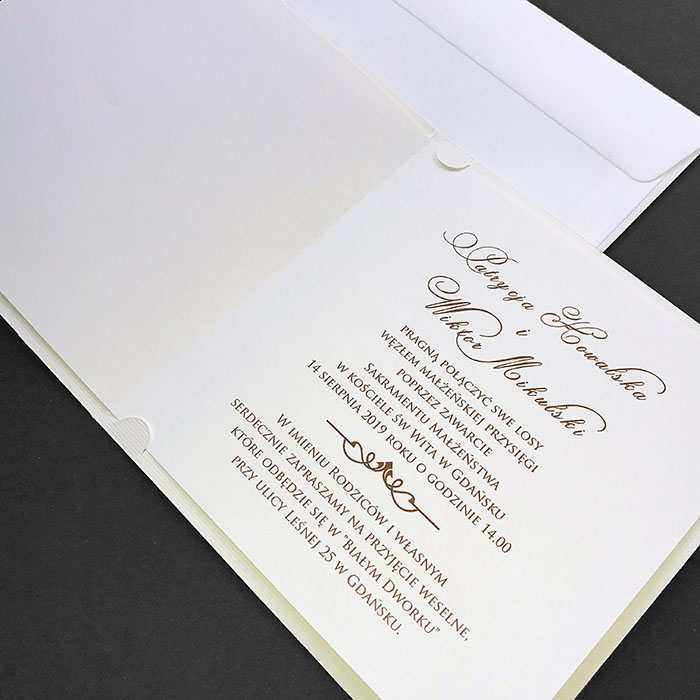 Patrycja Kowalska
i
Wiktor Mikulski
PRAGNĄ POŁĄCZYĆ SWE LOSY
WĘZŁEM MAŁŻEŃSKIEJ PRZYSIĘGI
POPRZEZ ZAWARCIE
SAKRAMENTU MAŁŻEŃSTWA
W KOŚCIELE ŚW WITA W GDAŃSKU
14 SIERPNIA 2019 ROKU O GODZINIE 14.00
W IMIENIU RODZICÓW I WŁASNYM
SERDECZNIE ZAPRASZAMY NA PRZYJĘCIE WESELNE,
KTÓRE ODBĘDZIE SIĘ W "BIAŁYM DWORKU"
PRZY ULICY LEŚNEJ 25 W GDAŃSKU.